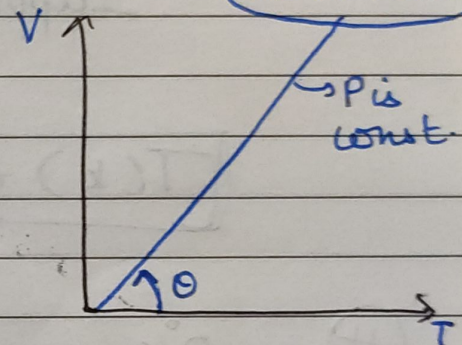 V
→ P is
const.
θ
T